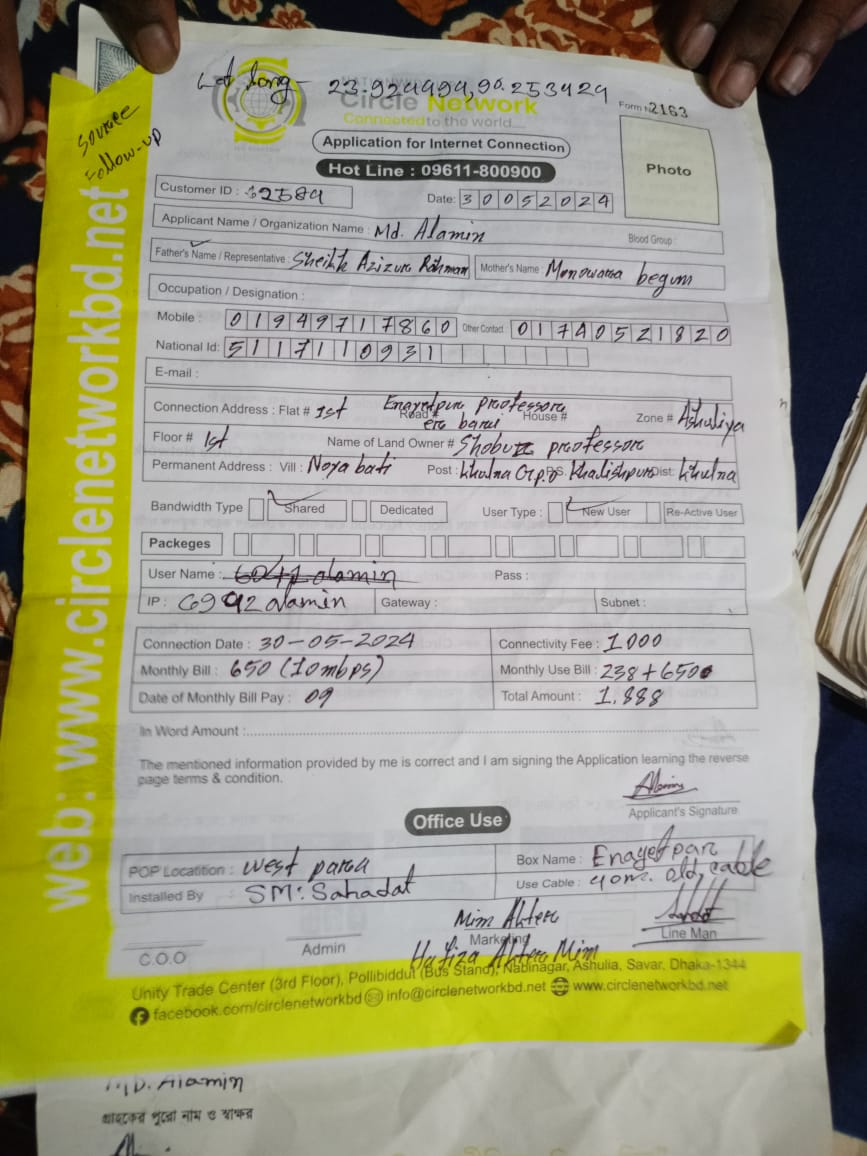 Lat Long - 23.924494, 90.253424
Source
Follow-up
Circle Network
Connected to the world....
Form N 2163
Application for Internet Connection
Hot Line : 09611-800900
Photo
Customer ID : 32584
Date: 30052024
Applicant Name / Organization Name : Md. Alamin
Blood Group :
Father's Name / Representative : Sheikh Azizur Rahman
Mother's Name : Monowara begum
Occupation / Designation :
Mobile : 01949717860
Other Contact : 01740521820
National Id: 5117110931
E-mail :
Connection Address : Flat # 1st Road # House # Enayetpur proofessor er bari Zone # Ashuliya
Floor # 1st Name of Land Owner # Shobuz proofessor
Permanent Address : Vill : Noya bati Post : Khulna G.p.o P.S. Khalishpur Dist: Khulna
Bandwidth Type Shared Dedicated User Type : New User Re-Active User
Packeges
User Name : Pass :
IP : 6992alamin Gateway : Subnet :
Connection Date : 30-05-2024
Connectivity Fee : 1000
Monthly Bill : 650 (10mbps)
Monthly Use Bill : 238+650
Date of Monthly Bill Pay : 09
Total Amount : 1,888
In Word Amount :
The mentioned information provided by me is correct and I am signing the Application learning the reverse
page terms & condition.
Alamin
Applicant's Signature
Office Use
POP Locatition : west para
Box Name : Enayetpur
Installed By : SM: Sahadat
Use Cable : 40m. old, cable
C.O.O
Admin
Mim Akter
Marketing
Hafiza Akter Mim
Line Man
Unity Trade Center (3rd Floor), Pollibiddut (Bus Stand), Nabinagar, Ashulia, Savar, Dhaka-1344
facebook.com/circlenetworkbd info@circlenetworkbd.net www.circlenetworkbd.net
web: www.circlenetworkbd.net
MD. Alamin
গ্রাহকের পুরো নাম ও স্বাক্ষর